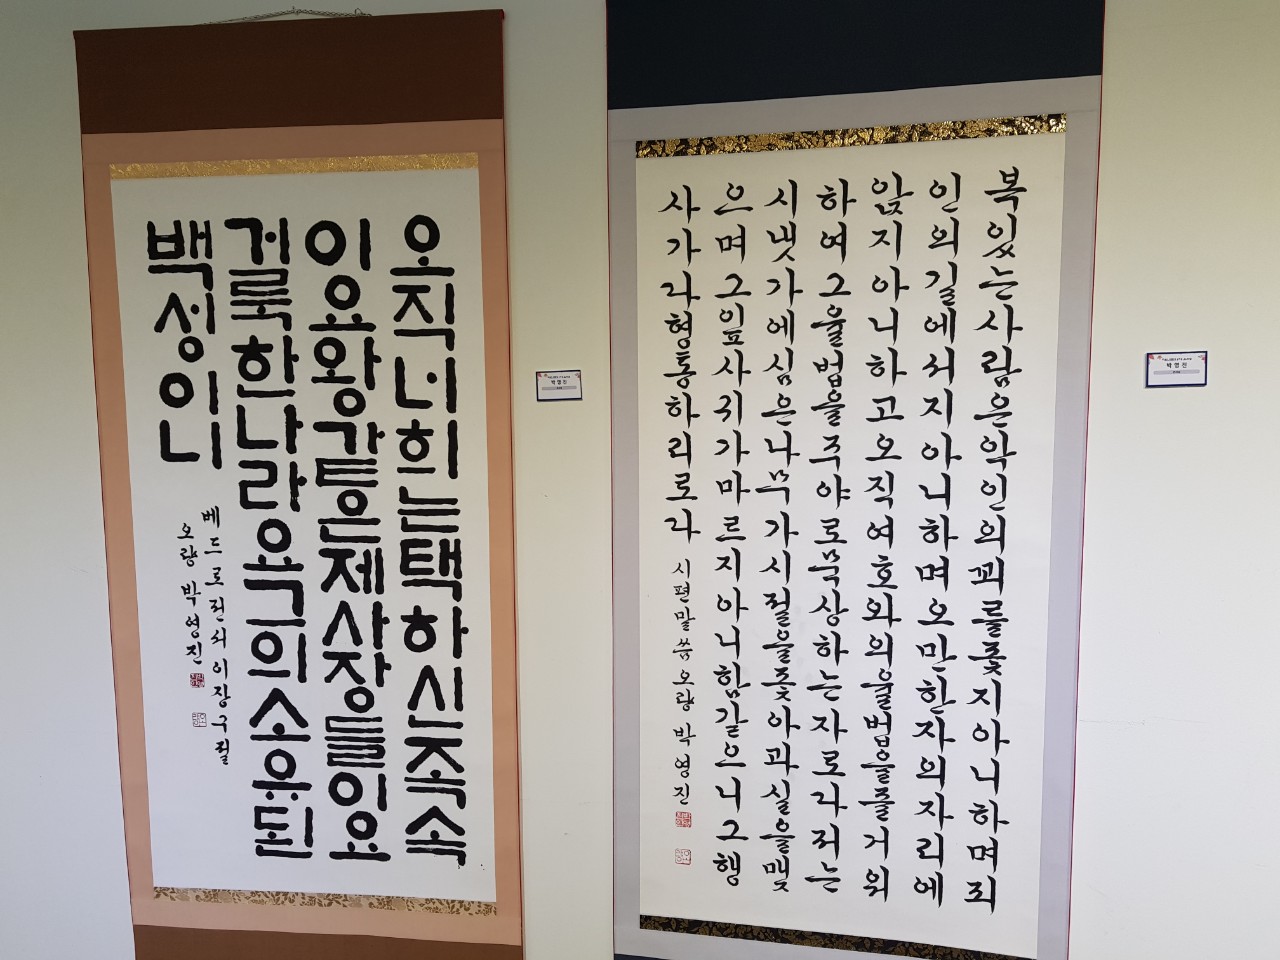 오직너희는택하신족속
이요왕같은제사장들이요
거룩한나라요그의소유된
백성이니
베드로전서이장구절
오량 박영진
박영진
복있는사람은악인의꾀를좇지아니하며죄
인의길에서지아니하며오만한자의자리에
앉지아니하고오직여호와의율법을즐거워
하여그율법을주야로묵상하는자로다저는
시냇가에심은나무가시절을좇아과실을맺
으며그잎사귀가마르지아니함같으니그행
사가다형통하리로다 시편말씀 오량 박영진
박영진